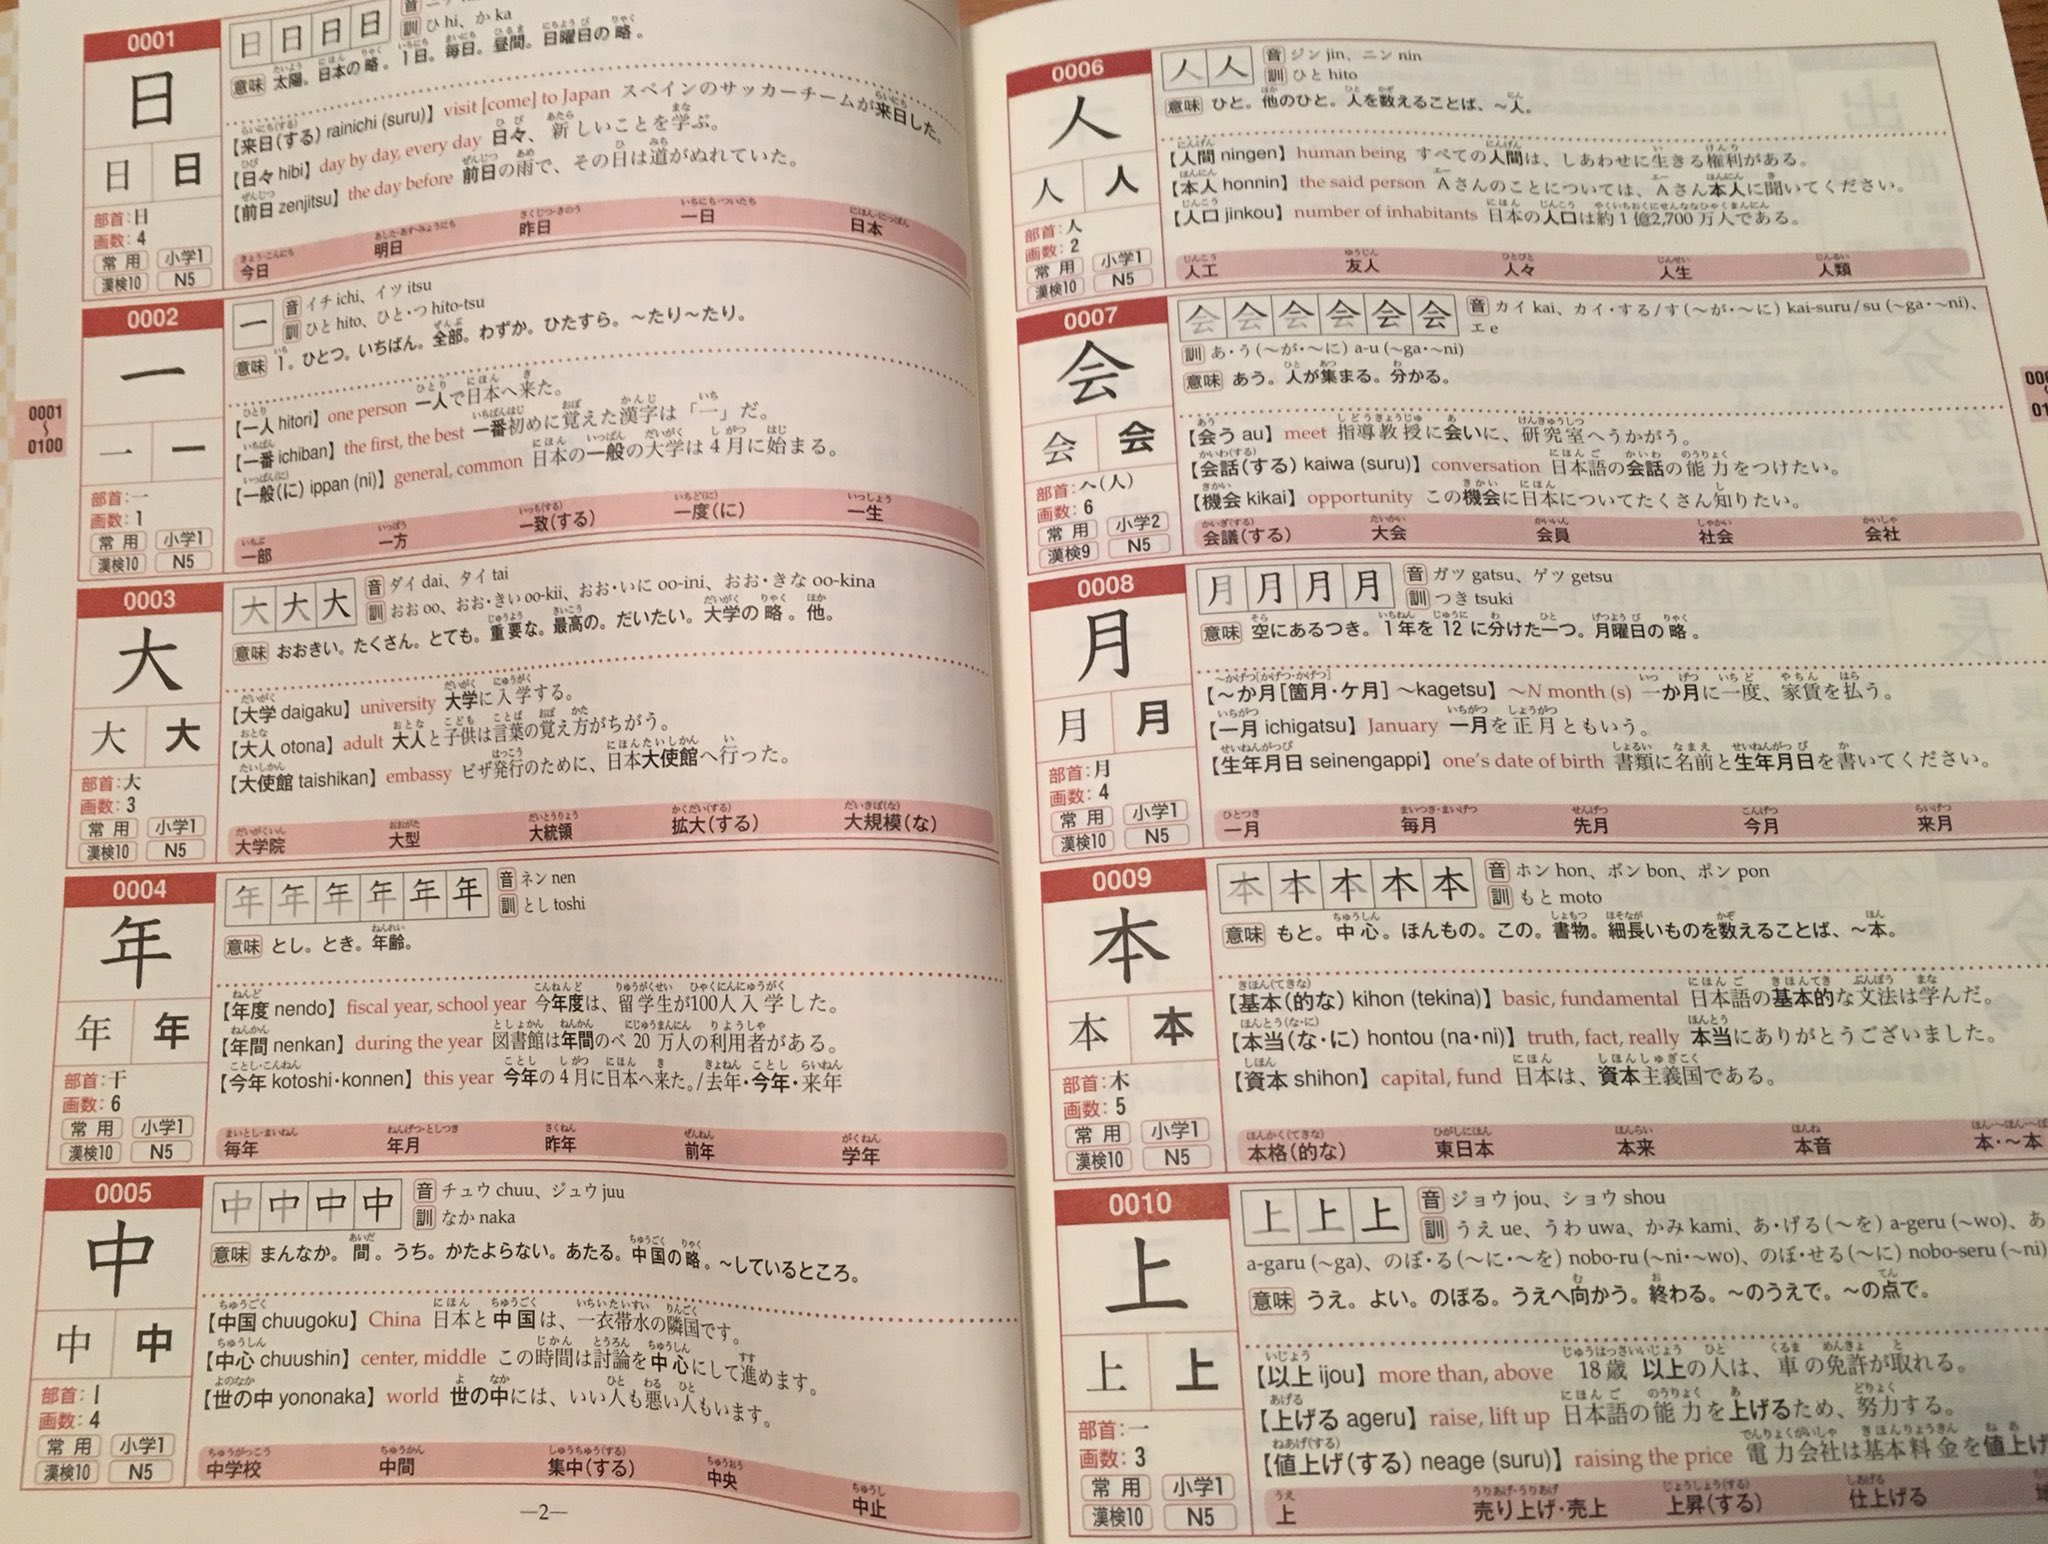 0001
日
日 日 日 日
訓 ひ hi、か ka
意味 太陽。日本の略。1日。毎日。昼間。日曜日の略。
【来日(する) rainichi (suru)】 visit [come] to Japan スペインのサッカーチームが来日した。
【日々 hibi】 day by day, every day 日々、新しいことを学ぶ。
【前日 zenjitsu】 the day before 前日の雨で、その日は道がぬれていた。
日 日
部首:日
画数:4
常用 小学1
漢検10 N5
今日 明日 昨日 一日 日本
0002
一
一
音 イチ ichi、イツ itsu
訓 ひと hito、ひと・つ hito-tsu
意味 1。ひとつ。いちばん。全部。わずか。ひたすら。〜たり〜たり。
【一人 hitori】 one person 一人で日本へ来た。
【一番 ichiban】 the first, the best 一番初めに覚えた漢字は「一」だ。
【一般(に) ippan (ni)】 general, common 日本の一般の大学は4月に始まる。
一 一
部首:一
画数:1
常用 小学1
漢検10 N5
一部 一方 一致(する) 一度(に) 一生
0001
〜
0100
0003
大
大 大 大
音 ダイ dai、タイ tai
訓 おお oo、おお・きい oo-kii、おお・いに oo-ini、おお・きな oo-kina
意味 おおきい。たくさん。とても。重要な。最高の。だいたい。大学の略。他。
【大学 daigaku】 university 大学に入学する。
【大人 otona】 adult 大人と子供は言葉の覚え方がちがう。
【大使館 taishikan】 embassy ビザ発行のために、日本大使館へ行った。
大 大
部首:大
画数:3
常用 小学1
漢検10 N5
大学院 大型 大統領 拡大(する) 大規模(な)
0004
年
年 年 年 年 年 年
音 ネン nen
訓 とし toshi
意味 とし。とき。年齢。
【年度 nendo】 fiscal year, school year 今年度は、留学生が100人入学した。
【年間 nenkan】 during the year 図書館は年間のべ20万人の利用者がある。
【今年 kotoshi・konnen】 this year 今年の4月に日本へ来た。/去年・今年・来年
年 年
部首:干
画数:6
常用 小学1
漢検10 N5
毎年 年月 昨年 前年 学年
0005
中
中 中 中 中
音 チュウ chuu、ジュウ juu
訓 なか naka
意味 まんなか。間。うち。かたよらない。あたる。中国の略。〜しているところ。
【中国 chuugoku】 China 日本と中国は、一衣帯水の隣国です。
【中心 chuushin】 center, middle この時間は討論を中心にして進めます。
【世の中 yononaka】 world 世の中には、いい人も悪い人もいます。
中 中
部首:丨
画数:4
常用 小学1
漢検10 N5
中学校 中間 集中(する) 中央 中止
—2—
0006
人
人 人
音 ジン jin、ニン nin
訓 ひと hito
意味 ひと。他のひと。人を数えることば、〜人。
【人間 ningen】 human being すべての人間は、しあわせに生きる権利がある。
【本人 honnin】 the said person Aさんのことについては、Aさん本人に聞いてください。
【人口 jinkou】 number of inhabitants 日本の人口は約1億2,700万人である。
人 人
部首:人
画数:2
常用 小学1
漢検10 N5
人工 友人 人々 人生 人類
0007
会
会 会 会 会 会 会
音 カイ kai、カイ・する/す(〜が・〜に) kai-suru/su (~ga・~ni)、
エ e
訓 あ・う(〜が・〜に) a-u (~ga・~ni)
意味 あう。人が集まる。分かる。
【会う au】 meet 指導教授に会いに、研究室へうかがう。
【会話(する) kaiwa (suru)】 conversation 日本語の会話の能力をつけたい。
【機会 kikai】 opportunity この機会に日本についてたくさん知りたい。
会 会
部首:へ(人)
画数:6
常用 小学2
漢検9 N5
会議(する) 大会 会員 社会 会社
0008
月
月 月 月 月
音 ガツ gatsu、ゲツ getsu
訓 つき tsuki
意味 空にあるつき。1年を12に分けた一つ。月曜日の略。
【〜か月[箇月・ケ月] 〜kagetsu】 〜N month (s) 一か月に一度、家賃を払う。
【一月 ichigatsu】 January 一月を正月ともいう。
【生年月日 seinengappi】 one's date of birth 書類に名前と生年月日を書いてください。
月 月
部首:月
画数:4
常用 小学1
漢検10 N5
一月 毎月 先月 今月 来月
0009
本
本 本 本 本 本
音 ホン hon、ボン bon、ポン pon
訓 もと moto
意味 もと。中心。ほんもの。この。書物。細長いものを数えることば、〜本。
【基本(的な) kihon (tekina)】 basic, fundamental 日本語の基本的な文法は学んだ。
【本当(な・に) hontou (na・ni)】 truth, fact, really 本当にありがとうございました。
【資本 shihon】 capital, fund 日本は、資本主義国である。
本 本
部首:木
画数:5
常用 小学1
漢検10 N5
本格(的な) 東日本 本来 本音 本・〜本
0010
上
上 上 上
音 ジョウ jou、ショウ shou
訓 うえ ue、うわ uwa、かみ kami、あ・げる(〜を) a-geru (~wo)、あ
a-garu (~ga)、のぼ・る(〜に・〜を) nobo-ru (~ni・~wo)、のぼ・せる(〜に) nobo-seru (~ni)
意味 うえ。よい。のぼる。うえへ向かう。終わる。〜のうえで。〜の点で。
【以上 ijou】 more than, above 18歳以上の人は、車の免許が取れる。
【上げる ageru】 raise, lift up 日本語の能力を上げるため、努力する。
【値上げ(する) neage (suru)】 raising the price 電力会社は基本料金を値上げ
上 上
部首:一
画数:3
常用 小学1
漢検10 N5
上 売り上げ・売上 上昇(する) 仕上げる